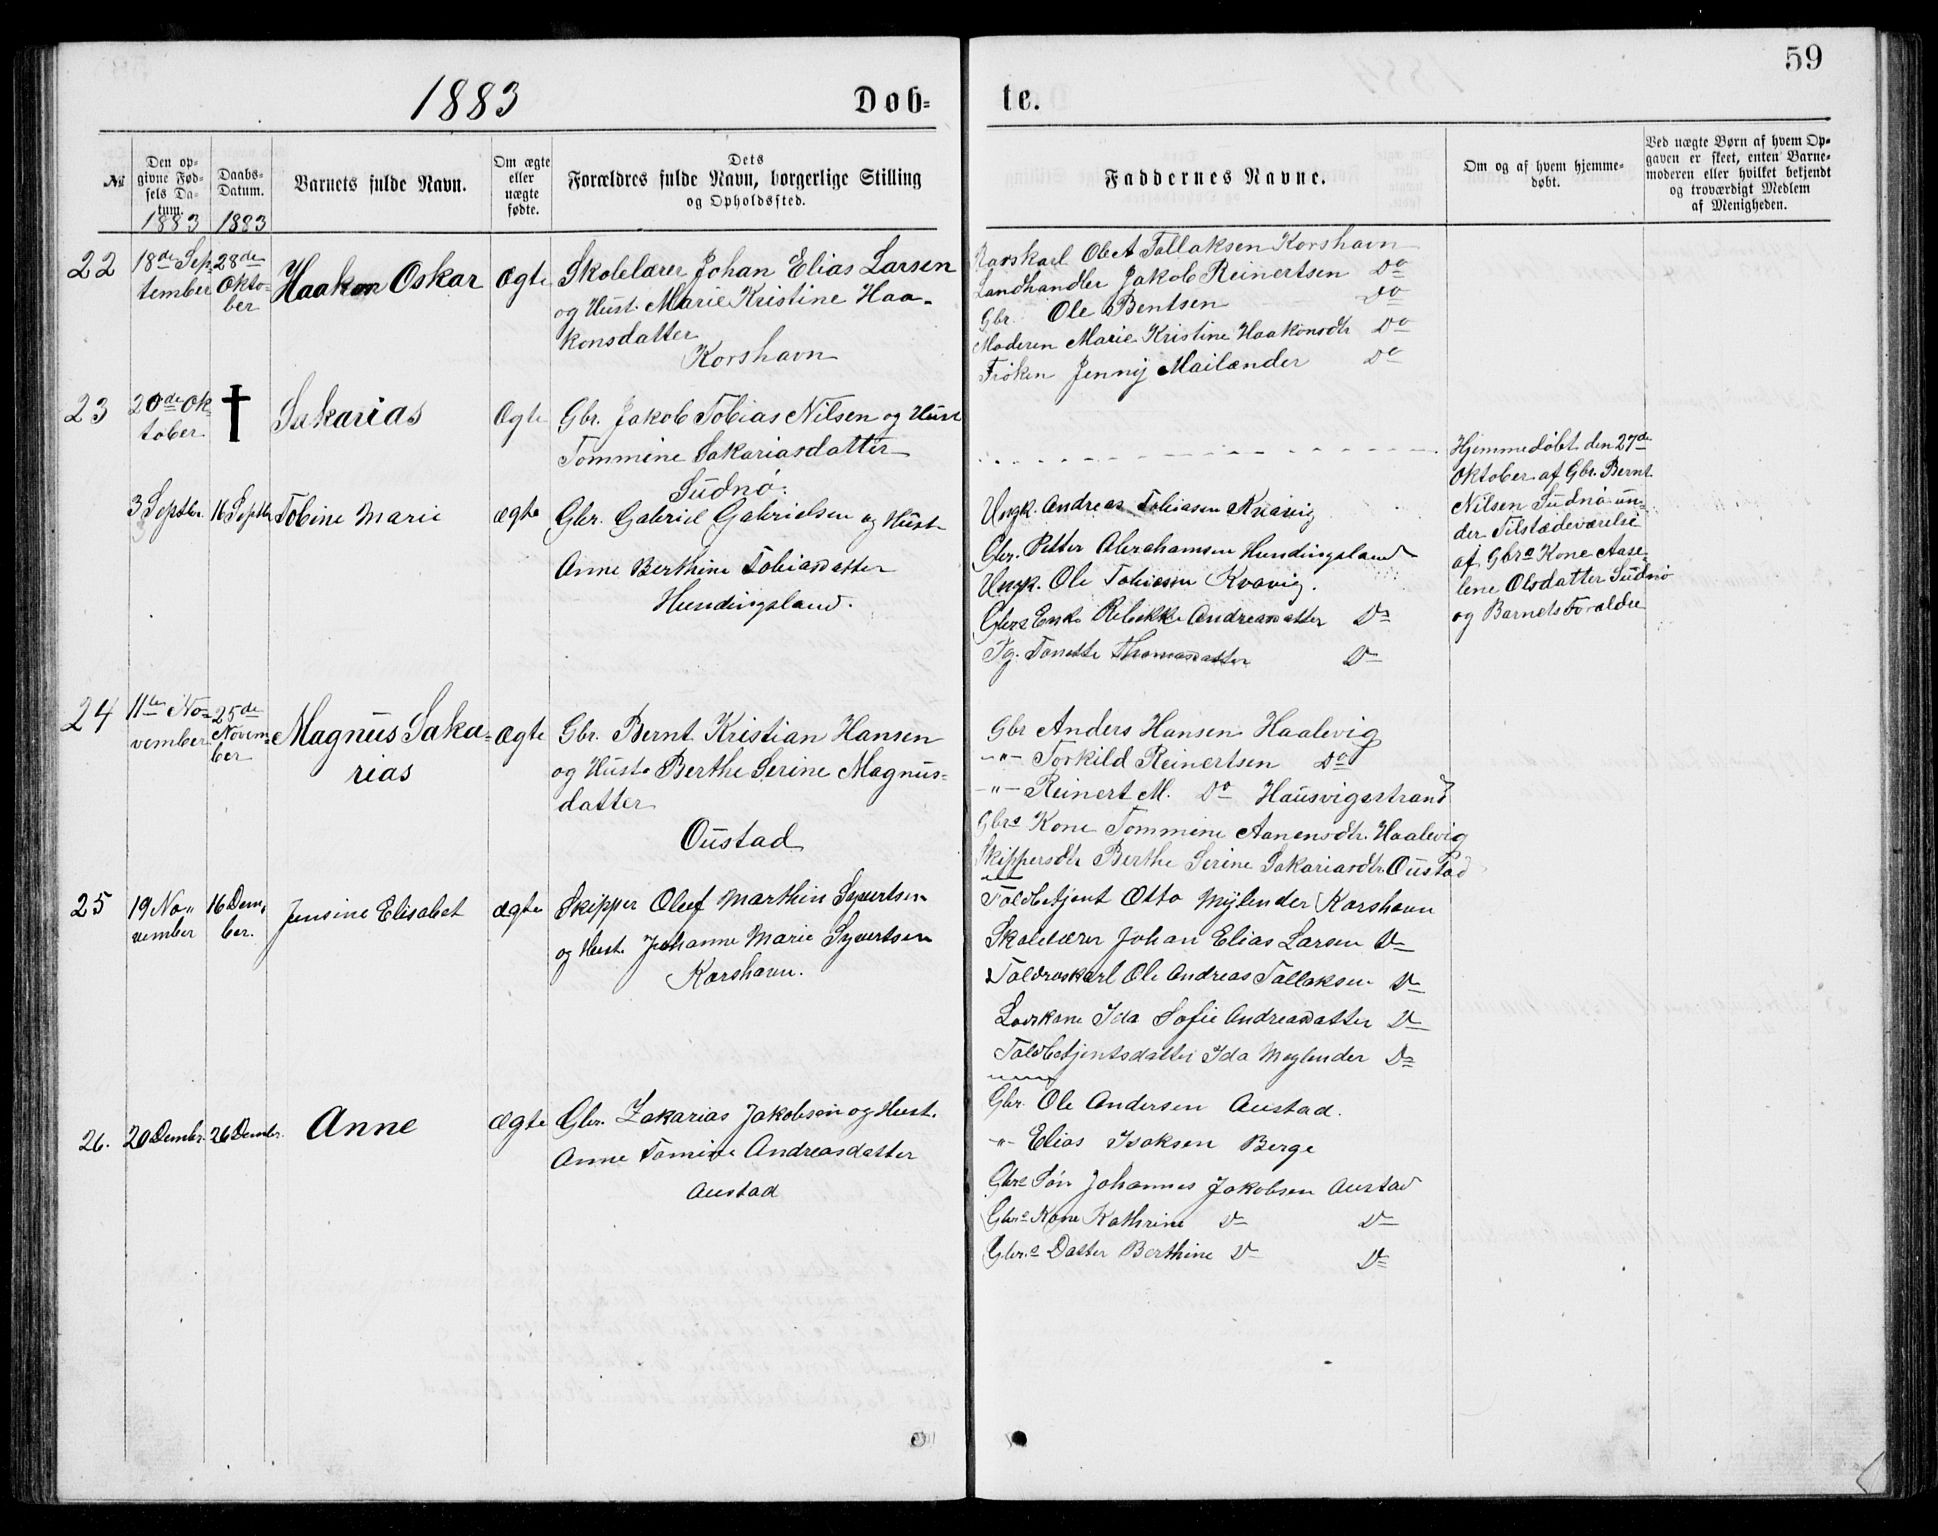 59
1883 Døb- te.
№
Den op-
givne Fød-
sels Da-
tum.
1883
Daabs-
Datum.
1883
Barnets fulde Navn.
Om ægte
eller
uægte
fødte.
Dets
Forældres fulde Navn, borgerlige Stilling
og Opholdssted.
Faddernes Navne.
Om og af hvem hjemme-
døbt.
Ved uægte Børn af hvem Op-
gaven er skeet, enten Barne-
moderen eller hvilket bekjendt
og troværdigt Medlem
af Menigheden.
22
18de Sep
tember
28de
Okto-
ber
Haakon Oskar
Ægte
Skolelærer Johan Elias Larsen
og Hust. Marie Kristine Haa-
konsdatter
Korshavn
Ole A Tallaksen Korshavn
Landhandler Jakob Reinertsen Do
Gbr. Ole Bentsen Do
Moderen Marie Kristine Haakonsdtr Do
Frøken Jenny Mailænder Do
23
20de Ok
tober
†
Sakarias
Ægte
Gbr. Jakob Tobias Nilsen og Hust
Tommine Sakariasdatter
Sudnø.
Hjemmedøbt den 27de
Oktober af Gbr. Bernt
Nilsen Sudnø un-
der Tilstædeværelse
af Gbrs Kone Aase-
lene Olsdatter Sudnø
og Barnets Forældre
3 Septbr.
16 Septbr
Tobine Marie
ægte
Gbr. Gabriel Gabrielsen og Hust.
Anne Berthine Tobiasdatter
Hundingsland.
Ungk. Andreas Tobiasen Kvavig
Gbr. Petter Abrahamsen Hundingsland
Ungk. Ole Tobiasen Kvavig.
Gbrs Enke Rebekke Andreasdatter Do
Pg. Tonette Thomasdatter Do
24
11te No-
vember
25de
Novem-
ber
Magnus Saka-
rias
Ægte
Gbr. Bernt Kristian Hansen
og Hust. Berthe Serine Magnus-
datter
Oustad
Gbr Anders Hansen Haalevig
-"- Torkild Reinertsen Do
-"- Reinert M. Do Hausvigstrand
Gbrs Kone Tommine Aanensdtr. Haalevig
Skippersdtr Berthe Serine Sakariasdtr. Oustad
25
19 No-
vember
16 Dem,
ber.
Jensine Elisabet
ægte
Skipper Oluf Marthin Syvertsen
og Hust. Johanne Marie Syvertsen
Korshavn.
Toldbetjent Otto Mylender Korshavn
Skolelærer Johan Elias Larsen Do
Toldroskarl Ole Andreas Tallaksen Do
Ida Sofie Andreasdatter Do
Toldbetjentsdatter Ida Meylender Do
26.
20 Dembr.
26 Dembr.
Anne
Ægte
Gbr. Zakarias Jakobsen og Hust.
Anne Tomine Andreasdatter
Austad
Gbr. Ole Andersen Austad.
-"- Elias Isaksen Berge
Gbrs Søn Johannes Jakobsen Austad
Gbrs Kone Kathrine Do Do
Gbr.s Datter Berthine Do Do